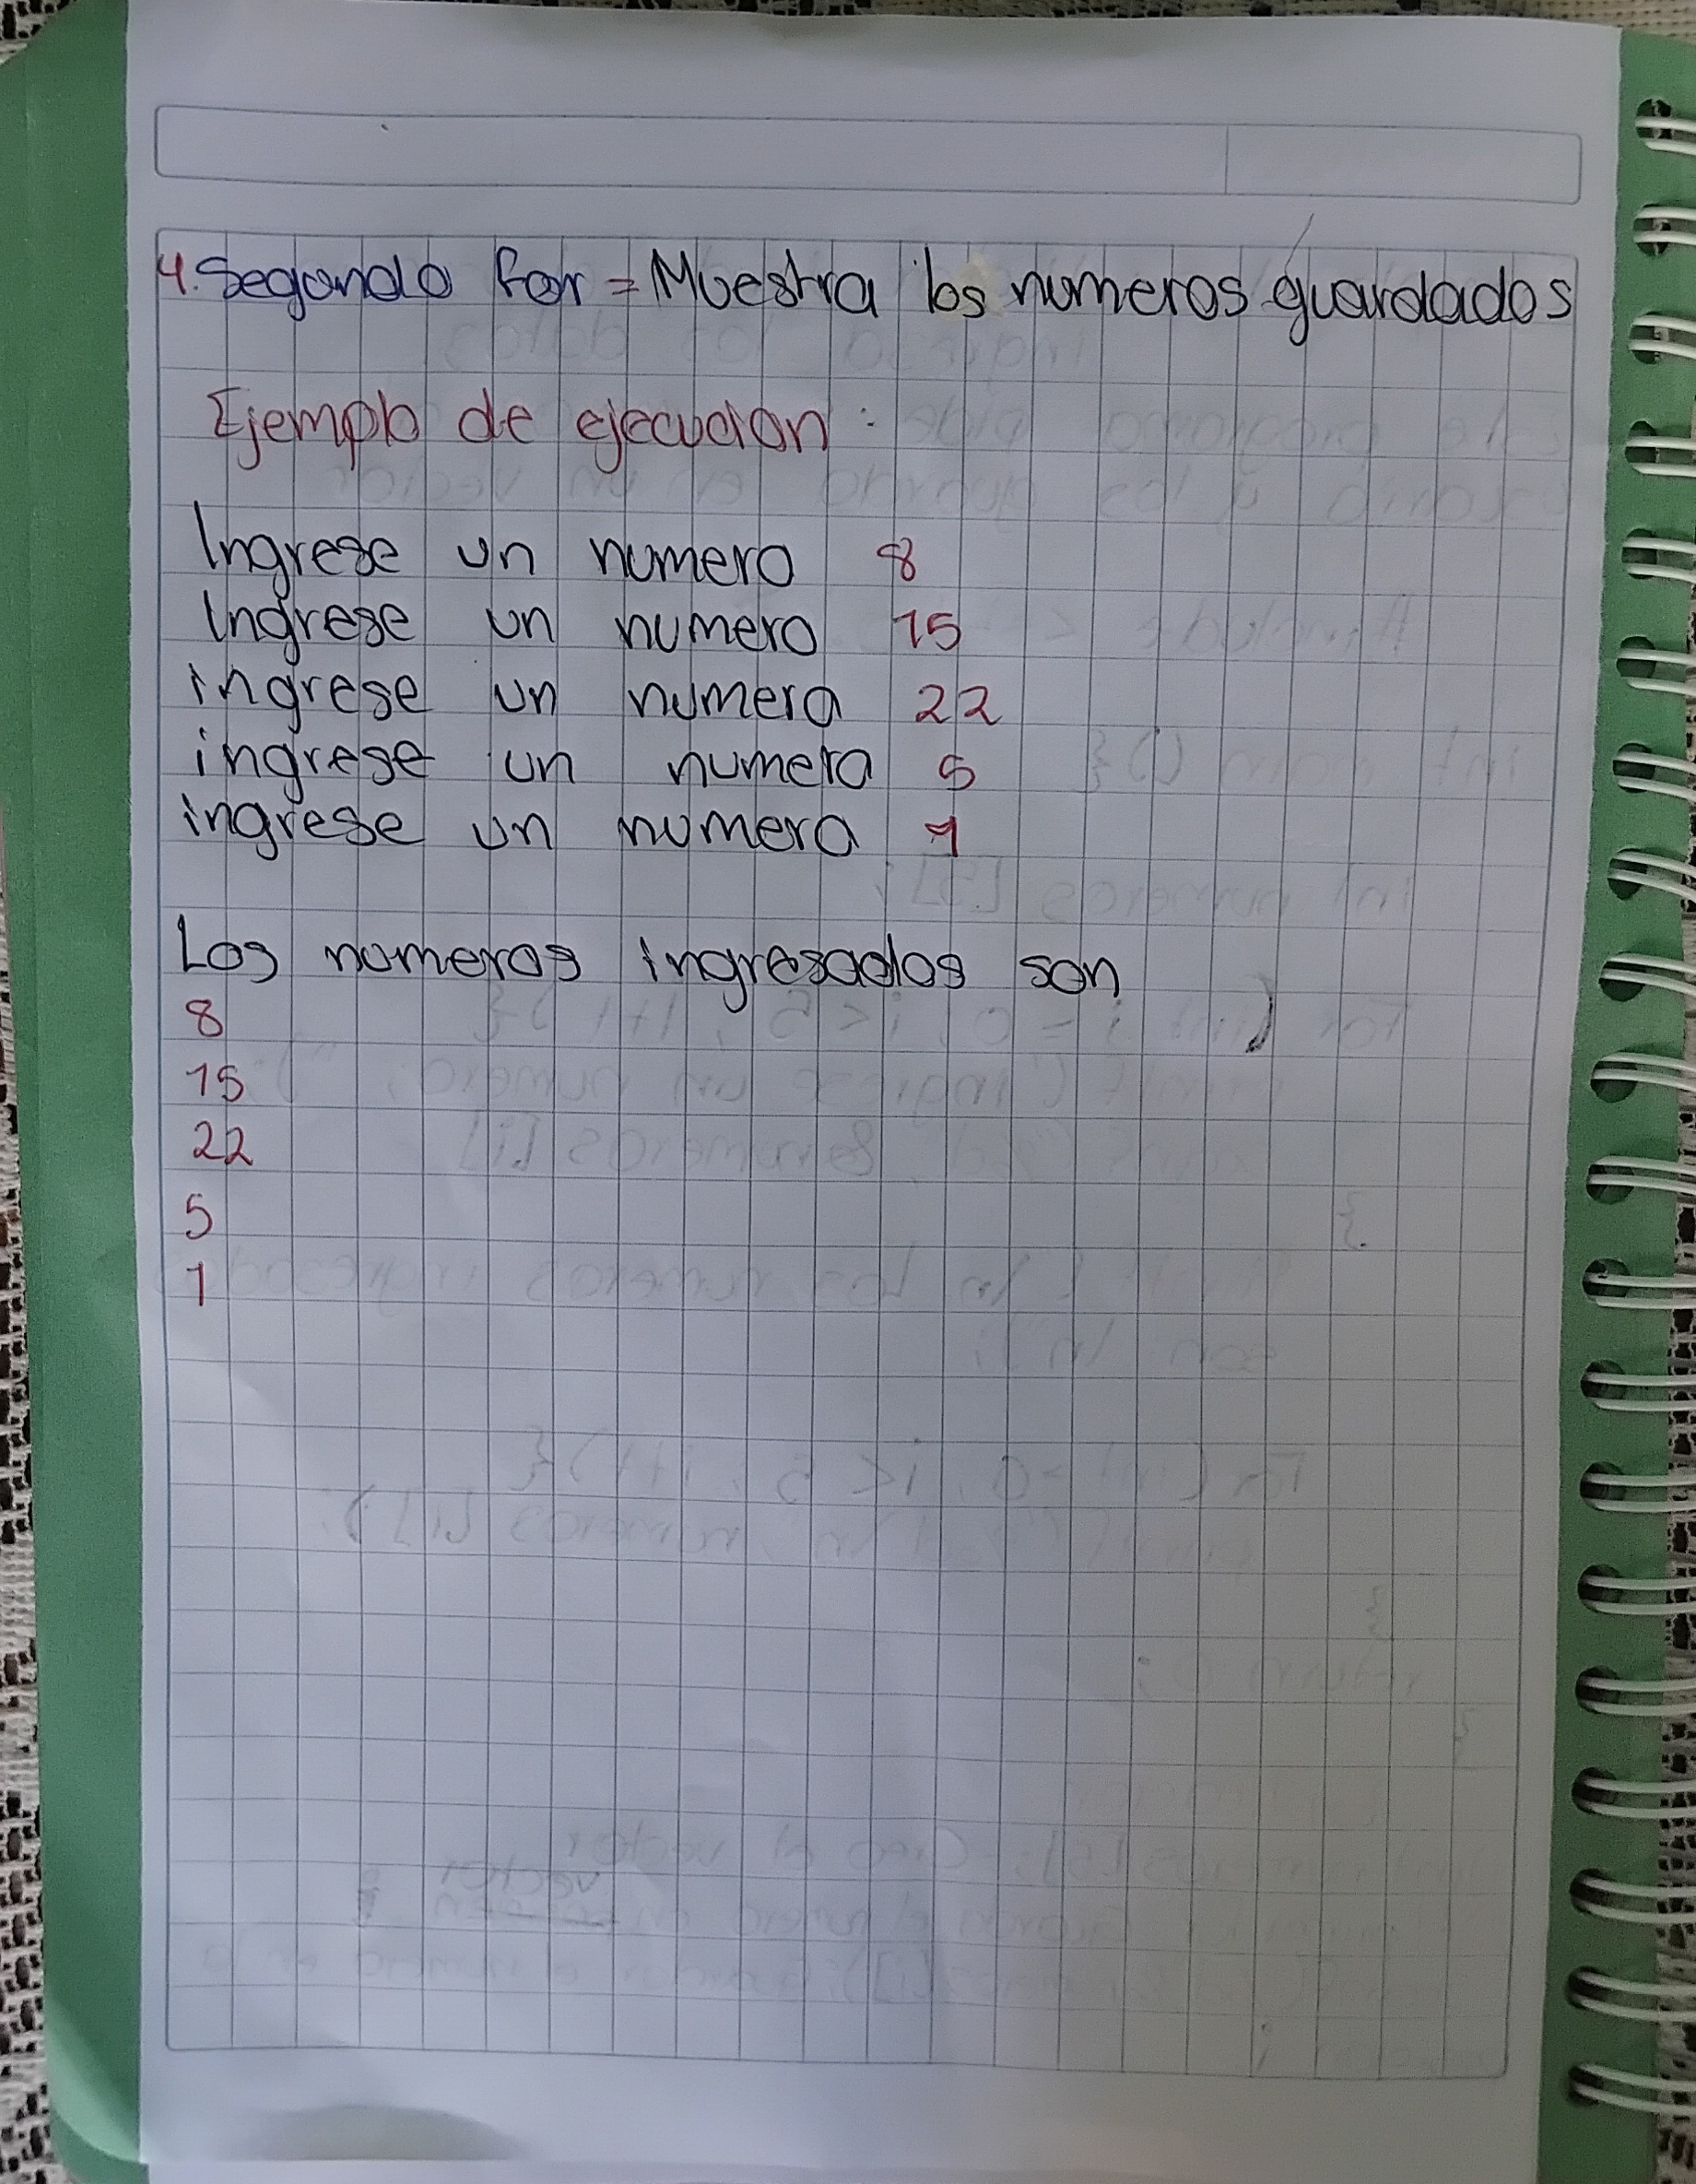 4. Segundo for = Muestra los numeros guardados
Ejemplo de ejecucion :
Ingrese un numero 8
Ingrese un numero 15
ingrese un numero 22
ingrese un numero 5
ingrese un numero 1
Los numeros ingresados son
8
15
22
5
1